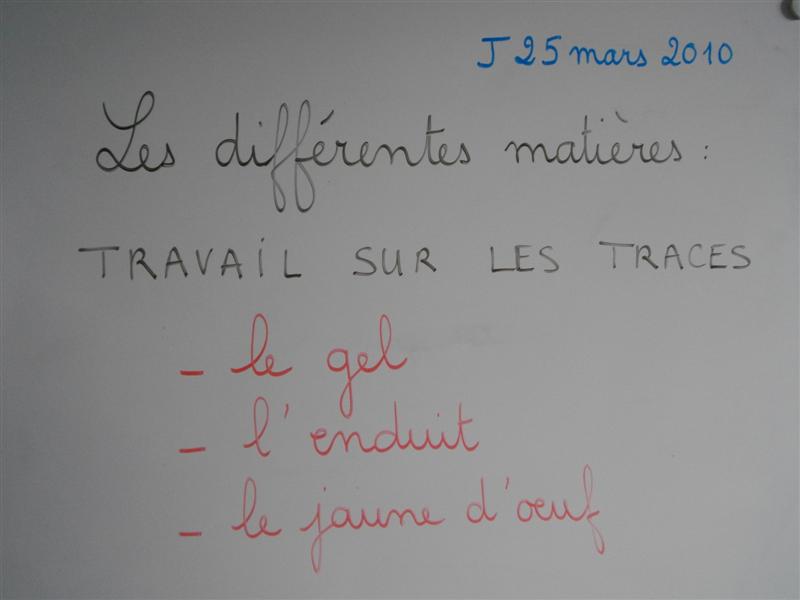 J 25 mars 2010
Les différentes matières :
TRAVAIL SUR LES TRACES
- le gel
- l'enduit
- le jaune d'œuf